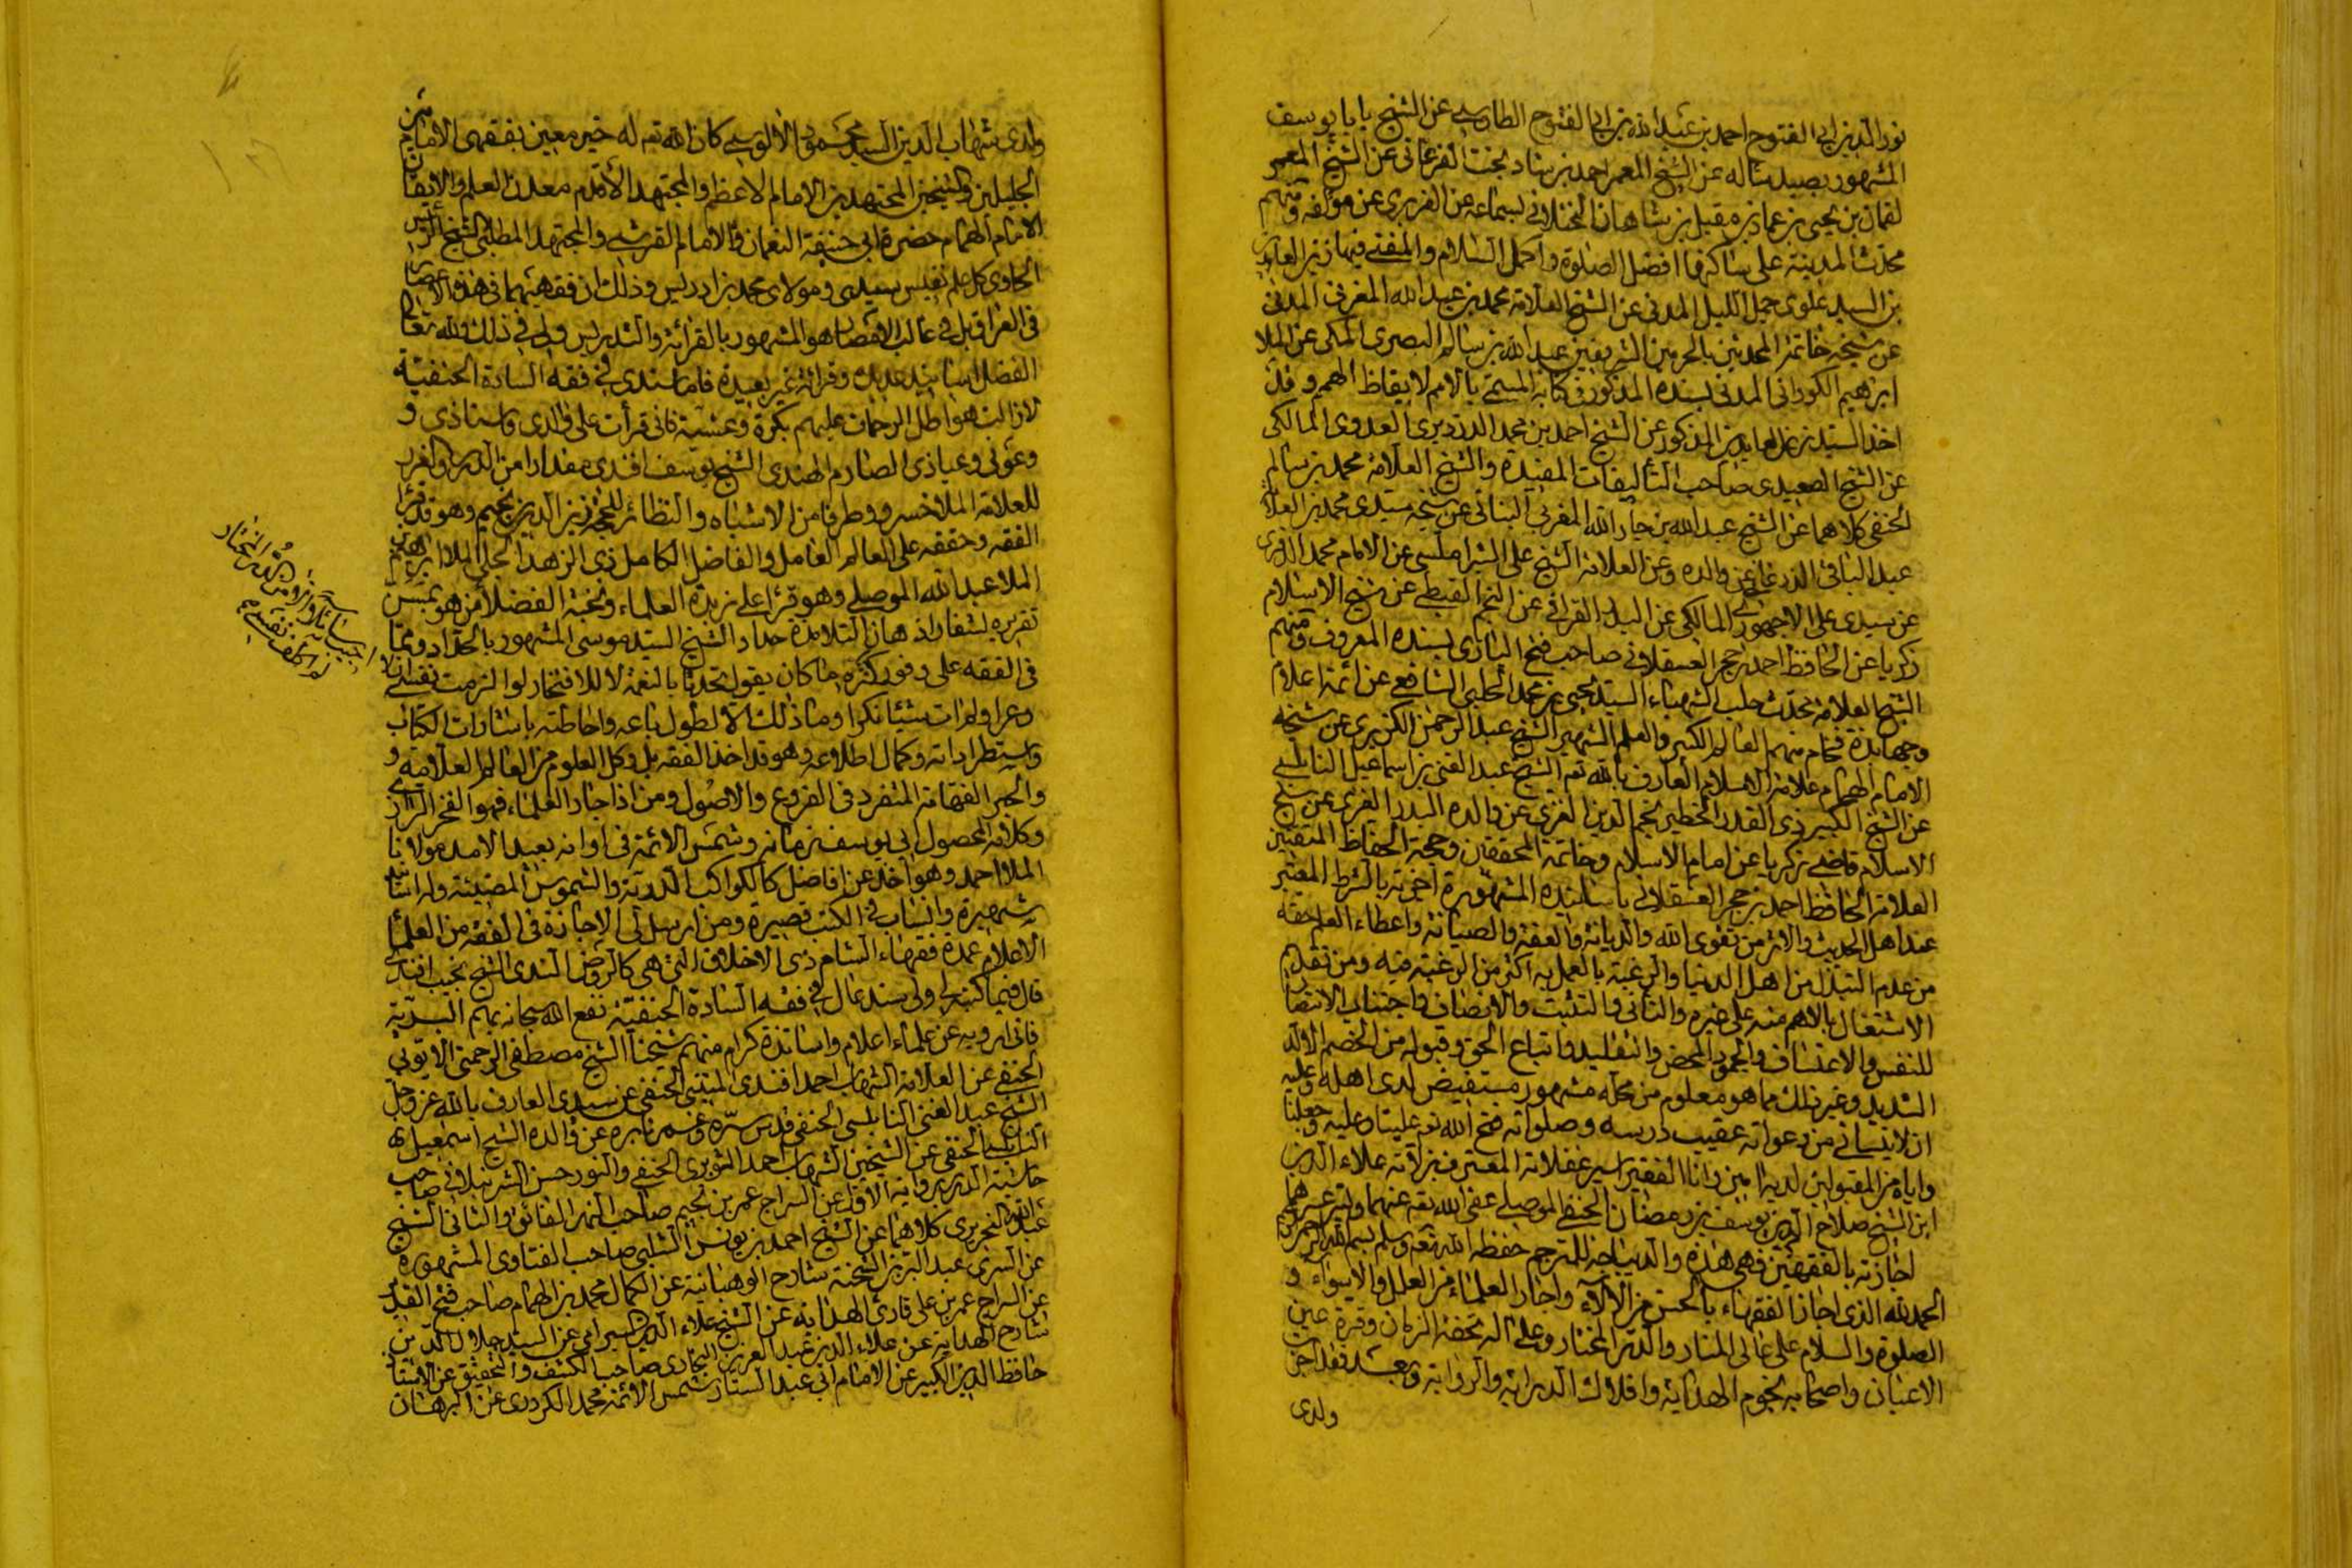 نور الدين ابى الفتوح احمد بن عبد الله بن ابى الفتوح الطاوسى عن الشيخ بابا يوسف
المشهور بصيد ساله عن الشيخ المعمر احمد بن شاد بخت الفرغانى عن الشيخ المعمر
لقمان بن يحيى بن عمار بن مقبل بن شاهان الختلانى بسماعه عن الفربرى عن مؤلفه ومنهم
محدث المدينة على ساكنها افضل الصلوة واكمل السلام والمفتى فيها زين العابدين
بن السيد علوى جمل الليل المدنى عن الشيخ العلامة محمد بن عبد الله المغربى المدنى
عن شيخه خاتمة المحدثين بالحرمين الشريفين عبد الله بن سالم البصرى المكى عن الملا
ابرهيم الكورانى المدنى بسنده المذكور فى كتابه المسمى بالامم لايقاظ الهمم وقد
اخذ السيد زين العابدين المذكور عن الشيخ احمد بن محمد الدرديرى العدوى المالكى
عن الشيخ الصعيدى صاحب التأليفات المفيدة والشيخ العلامة محمد بن سالم
الحنفى كلاهما عن الشيخ عبد الله بن جار الله المغربى البنانى عن شيخه سيدى محمد بن العلا
عبد الباقى الزرقانى عن والده وعن العلامة الشيخ على الشبراملسى عن الامام محمد
عن سيدى على الاجهورى المالكى عن البدر القرافى عن النجم الغيطى عن شيخ الاسلام
زكريا عن الحافظ احمد بن حجر العسقلانى صاحب فتح البارى بسنده المعروف ومنهم
الشيخ العلامة محدث حلب الشهباء السيد يحيى بن محمد الحلبى الشافعى عن ائمة اعلام
وجهابذة فخام منهم العالم الكبير والعلم الشهير الشيخ عبد الرحمن الكزبرى عن شيخه
الامام الهمام علامة الاسلام العارف بالله تع الشيخ عبد الغنى بن اسماعيل النابلسى
عن الشيخ الكبير ذى القدر الخطير نجم الدين الغزى عن والده البدر الغزى عن شيخ
الاسلام قاضى زكريا عن امام الاسلام وخاتمة المحققين وحجة الحفاظ المتقنين
العلامة الحافظ احمد بن حجر العسقلانى باسانيده المشهورة اجزته بالشرط المعتبر
عند اهل الحديث والاثر من تقوى الله والديانة والعفة والصيانة واعطاء العلم حقه
من عدم التبذل بين اهل الدنيا والرغبة بالعمل به اكثر من الرغبة فيه ومن تقديم
الاشتغال بالاهم منه على غيره والتأنى والتثبت والانصاف واجتناب الانتصار
للنفس والاعتساف والجمود المحض والتقليد واتباع الحق وقبوله من الخصم الالد
الشديد وغير ذلك مما هو معلوم من محله مشهور مستفيض لدى اهله وعليه
ان لا ينسانى من دعواته عقيب دروسه وصلواته فتح الله تع علينا وعليه وجعلنا
واياه من المقبولين لديه امين وانا الفقير اسير غفلاته المعترف بزلاته علاء الدين
ابن الشيخ صلاح الدين يوسف بن رمضان الحنفى الموصلى عفى الله تع عنهما وستر عيوبهما
اجازته بالفقهين فهى هذه والديباجة للمترجم حفظه الله تع وسلم بسم الله الرحمن الرحيم
الحمد لله الذى اجاز الفقهاء بالحسن من الآلاء واجار العلماء من العلل والاسواء و
الصلوة والسلام على عالى المنار والدر المختار وعلى اله تحفة الزمان وقرة عين
الاعيان واصحابه نجوم الهداية وافلاك الدراية والرواية وبعد فقد اجزت
ولدى
ولدى شهاب الدين السيد محمود الالوسى كان الله تع له خير معين بفقهى الامامين
الجليلين والشيخين المجتهدين الامام الاعظم والمجتهد الاقدم معدن العلم والايقان
الامام الهمام حضرة ابى حنيفة النعمان والامام القرشى والمجتهد المطلبى الشيخ الرئيس
الحاوى كل علم نفيس سيدى ومولاى محمد بن ادريس وذلك ان فقهيهما فى هذه الاعصار
فى العراق بل فى غالب الامصار هو المشهور بالقرائة والتدريس ولى فى ذلك ولله تعالى
الفضل اسانيد عديدة وقرائة غير بعيدة فاما سندى فى فقه السادة الحنفية
لازالت هواطل الرحمات عليهم بكرة وعشية فانى قرأت على والدى واستاذى و
وعونى وعياذى الصارم الهندى الشيخ يوسف افندى مقدارا من الدرر والغرر
للعلامة الملا خسرو وطرفا من الاشباه والنظائر للبحر زين الدين بن نجيم وهو قد قرأ
الفقه وحققه على العالم العامل والفاضل الكامل ذى الزهد الجلى الملا ابرهيم بن
الملا عبد الله الموصلى وهو قرأ على زبدة العلماء ونخبة الفضلاء من هو بمسن
تقريره لشفار اذهان التلامذة حداد الشيخ السيد موسى المشهور بالحداد ومما
فى الفقه على وفور كثره ما كان يقول تحدثا بالنعمة لا للافتخار لو الزمت نفسى ان لا
وعرا ولم ات شيئا نكرا وما ذلك الا لطول باعه واحاطته باشارات الكتاب
واستطراداته وكمال اطلاعه وهو قد اخذ الفقه بل وكل العلوم من العالم العلامة و
والحبر الفهامة المتفرد فى الفروع والاصول ومن اذا جاد العلماء فهو الفخر الرازى
وكلامه المحصول ابى يوسف زمانه وشمس الائمة فى اوانه بعيد الامد مولانا
الملا احمد وهو اخذ عن افاضل كالكواكب الدرية والشموس المضيئة وله اسانيد
شهيرة وانساب فى الكتب قصيرة وممن ارسل لى الاجازة فى الفقه من العلماء
الاعلام عمدة فقهاء الشام ذى الاخلاق التى هى كالروض الندى الشيخ نجيب افندى
قال فيما كتبه لى ولى سند عال فى فقه السادة الحنفية نفع الله سبحانه بهم البرية
فانى ارويه عن علماء اعلام واساتذة كرام منهم شيخنا الشيخ مصطفى الرحمتى الايوبى
الحنفى عن العلامة الشهاب احمد افندى المنينى الحنفى عن سيدى العارف بالله عز وجل
الشيخ عبد الغنى النابلسى الحنفى قدس سره وغمر نابره عن والده الشيخ اسمعيل
النابلسى الحنفى عن الشيخين الشهاب احمد الشوبرى الحنفى والنور حسن الشرنبلالى صاحب
حاشية الدرر برواية الاول عن السراج عمر بن نجيم صاحب النهر الفائق والثانى الشيخ
عبد الله النحريرى كلاهما عن الشيخ احمد بن يونس الشلبى صاحب الفتاوى المشهورة
عن السرى عبد البر بن الشحنة شارح الوهبانية عن الكمال محمد بن الهمام صاحب فتح القدير
عن السراج عمر بن على قارى الهداية عن الشيخ علاء الدين السيرامى عن السيد جلال الدين
شارح الهداية عن علاء الدين عبد العزيز البخارى صاحب الكشف والتحقيق عن الاستاذ
حافظ الدين الكبير عن الامام ابى عبد الستار شمس الائمة محمد الكردرى عن البرهان